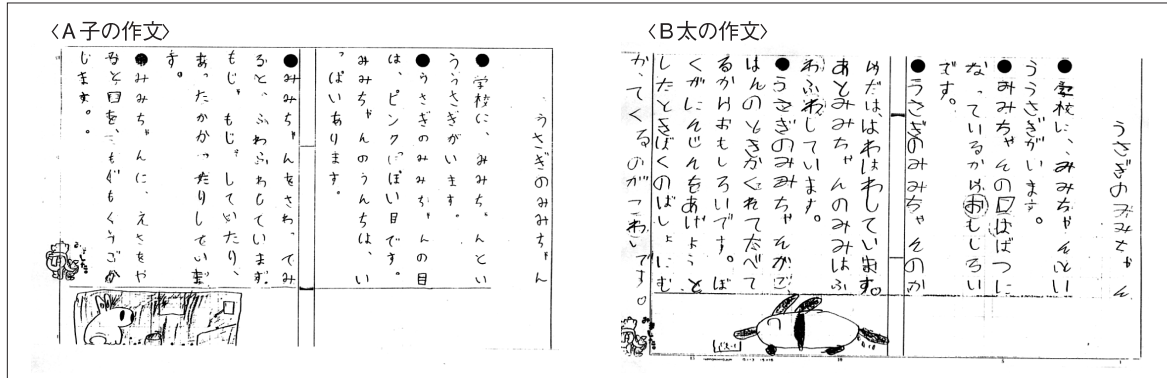 〈A子の作文〉
うさぎのみみちゃん
●学校に、みみちゃんとい
ううさぎがいます。
●うさぎのみみちゃんの目
は、ピンクっぽい目です。
みみちゃんのうんちは、い
っぱいあります。
●みみちゃんをさわってみ
ると、ふわふわしています。
もじゃもじゃしていたり、
あったかかったりしていま
す。
●みみちゃんに、えさをや
ると口を、もぐもぐうごか
します。
〈B太の作文〉
うさぎのみみちゃん
●学校に、みみちゃんとい
ううさぎがいます。
●みみちゃんの口はばつに
なっているからおもしろい
です。
●うさぎのみみちゃんのか
らだは、はわはわしています。
あとみみちゃんのみみはふ
わふわしています。
●うさぎのみみちゃんがご
はんのときかくれてたべて
るからおもしろいです。ぼ
くがにんじんをあげようと
したときぼくのばしょにむ
かってくるのがこわいです。